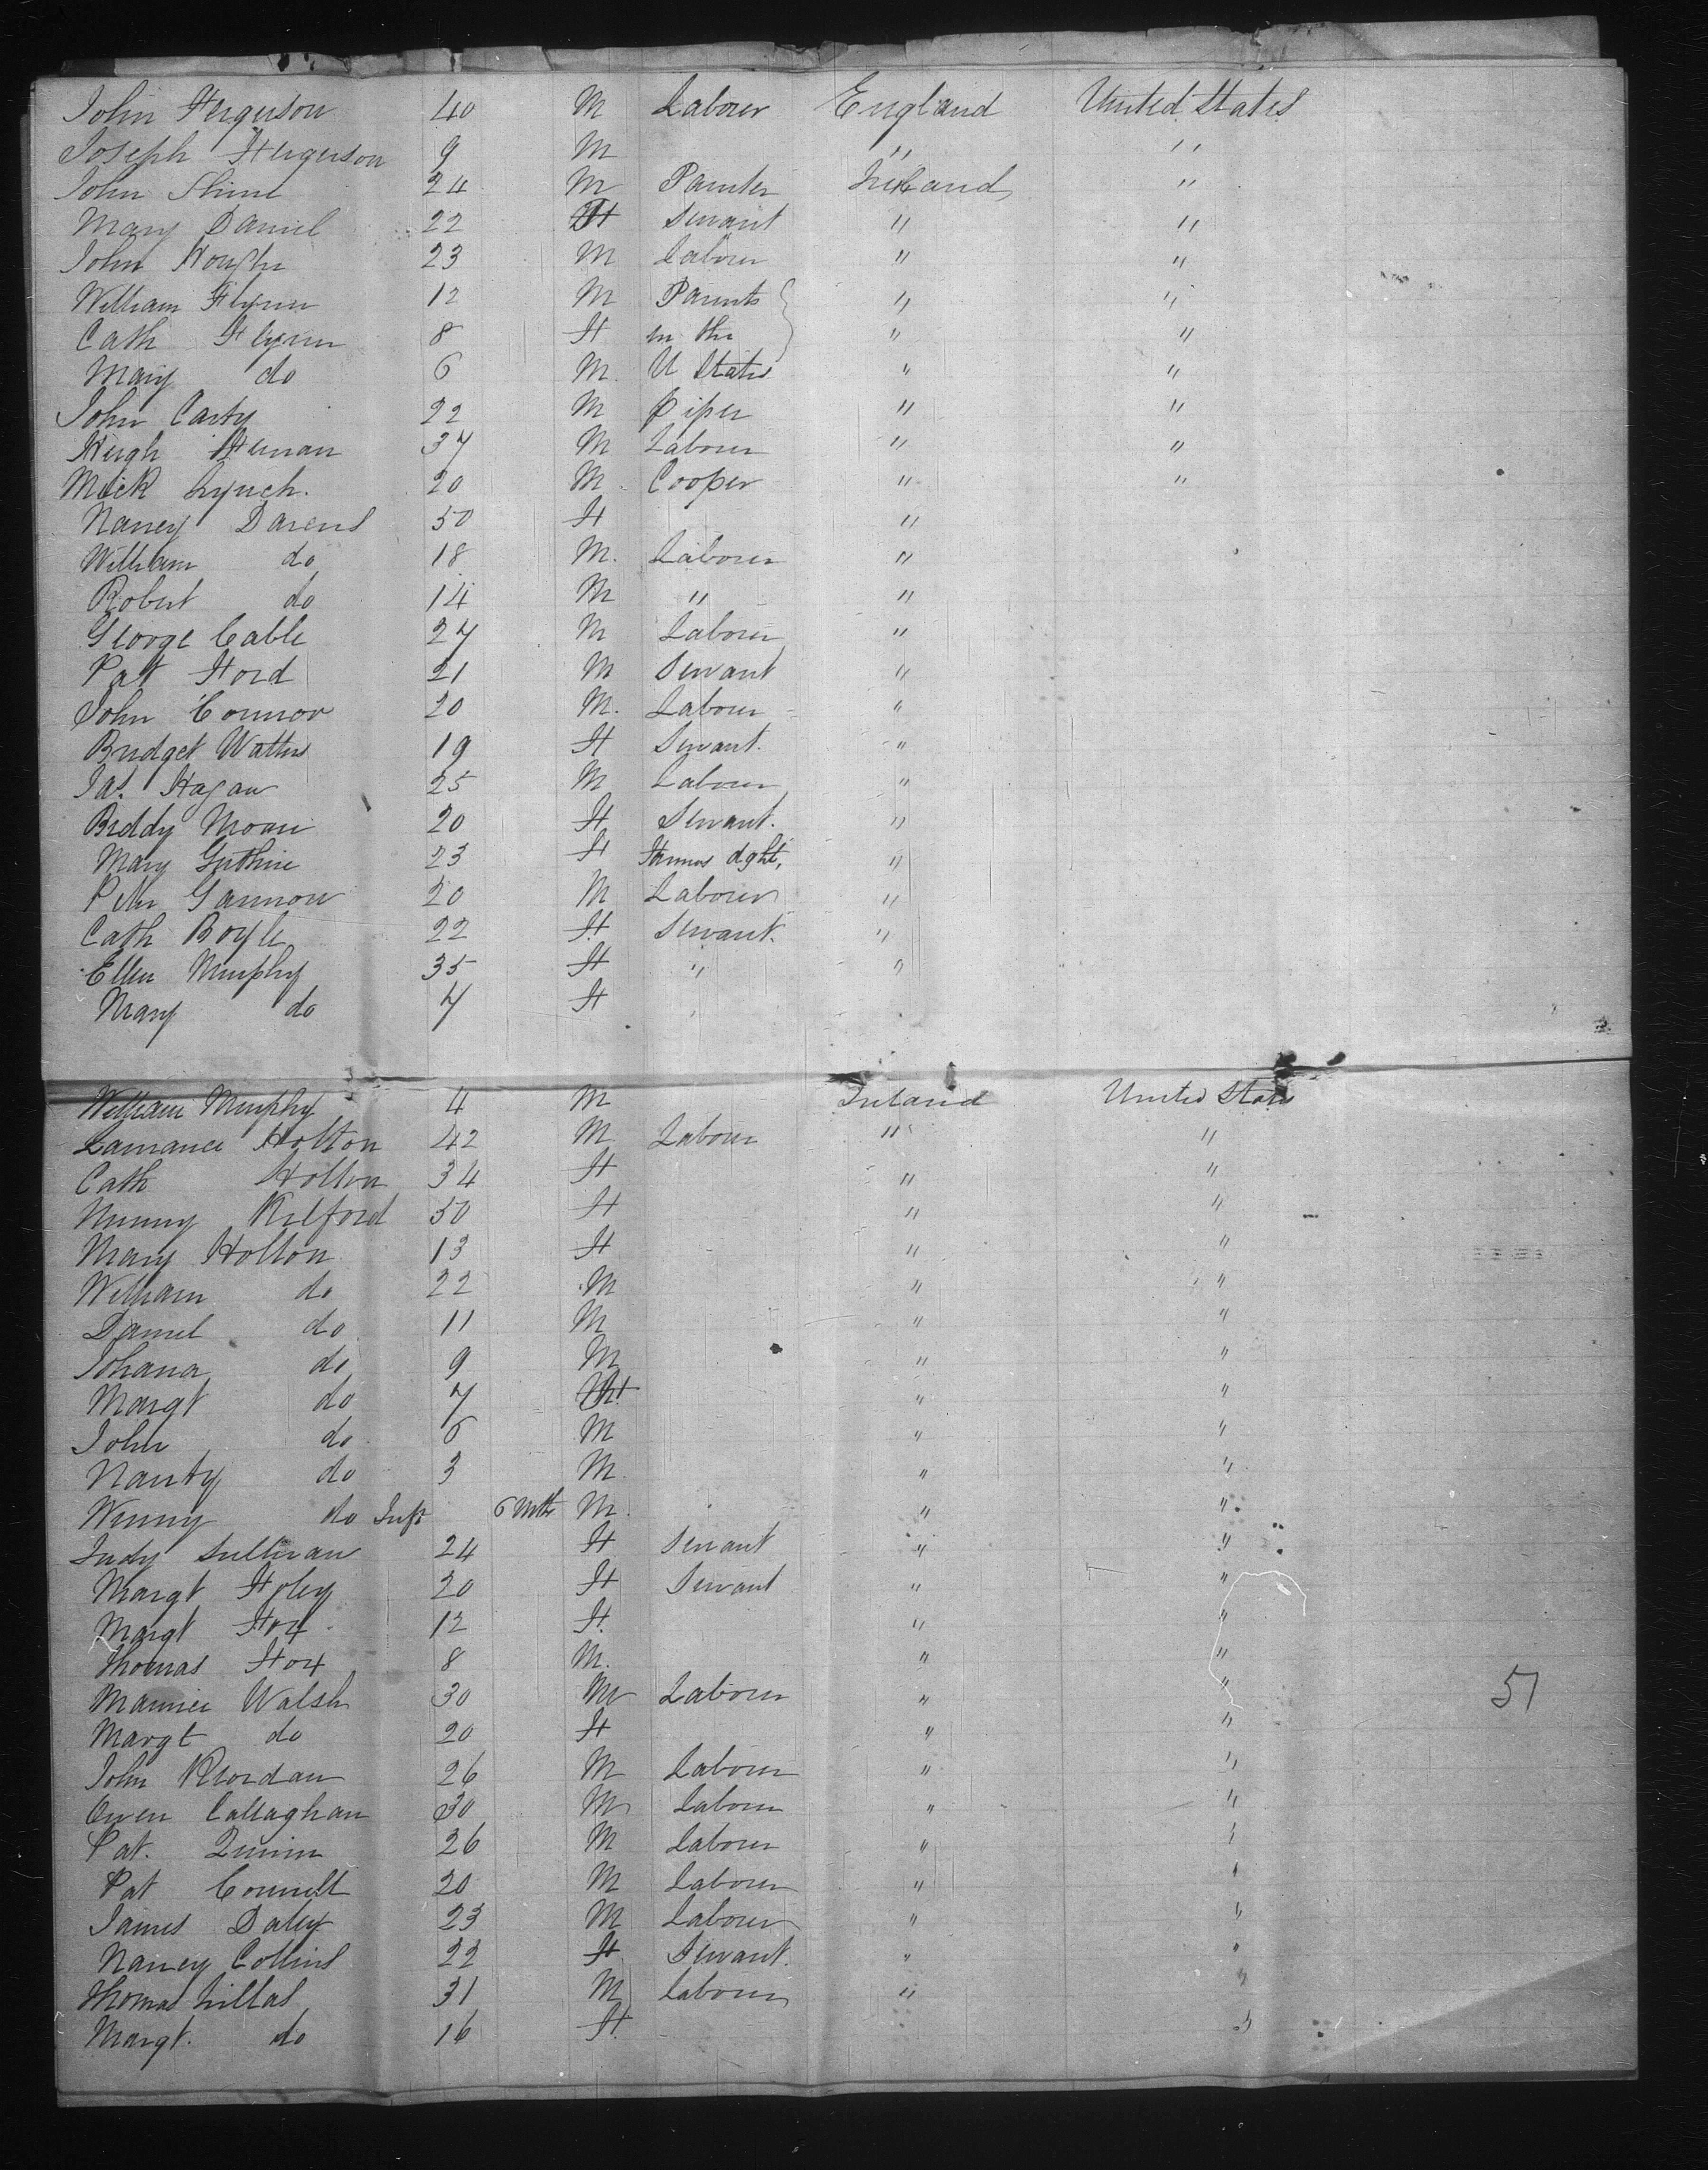 John Ferguson 40 M Laborer England United States
Joseph Ferguson 9 M " "
John Shine 24 M Painter Ireland "
Mary Daniel 22 F Servant " "
John Hough 23 M Laborer " "
William Flynn 12 M Parents " "
Cath Flynn 8 F in the " "
Mary do 6 M. U States " "
John Carty 22 M Piper " "
Hugh Heenan 37 M Laborer " "
Mick Lynch. 20 M. Cooper " "
Nancy Darens 50 F "
William do 18 M. Laborer "
Robert do 14 M " "
George Cable 27 M Laborer "
Pat Ford 21 M Servant "
John Connor 20 M. Laborer "
Bridget Watters 19 F Servant. "
Jas. Hagan 25 M Laborer "
Biddy Moan 20 F Servant. "
Mary Guthrie 23 F Farmers dght. "
Peter Gannon 20 M Laborer "
Cath Boyle 22 F Servant. "
Ellen Murphy 35 F " "
Mary do 7 F
William Murphy 4 M Ireland United States
Lawrance Holton 42 M Laborer " "
Cath Holton 34 F " "
Kilford 50 F " "
Mary Holton 13 F " "
William do 22 M " "
Daniel do 11 M " "
Johana do 9 M " "
Margt do 7 F " "
John do 6 M " "
Nanty do 3 M. " "
Winny do Inft 6 Mths M. " "
Judy Sullivan 24 F Servant " "
Margt Foley 20 F Servant " "
Margt Fox 12 F. " "
Thomas Fox 8 M. " "
Maurice Walsh 30 M Laborer " " 51
Margt do 20 F " "
John Riordan 26 M Laborer " "
Owen Callaghan 30 M Laborer " "
Pat. Quinn 26 M Laborer " "
Pat Connell 20 M Laborer " "
James Daley 23 M Laborer " "
Nancy Collins 22 F Servant. " "
Thomas 31 M Laborer " "
Margt. do 16 F. "